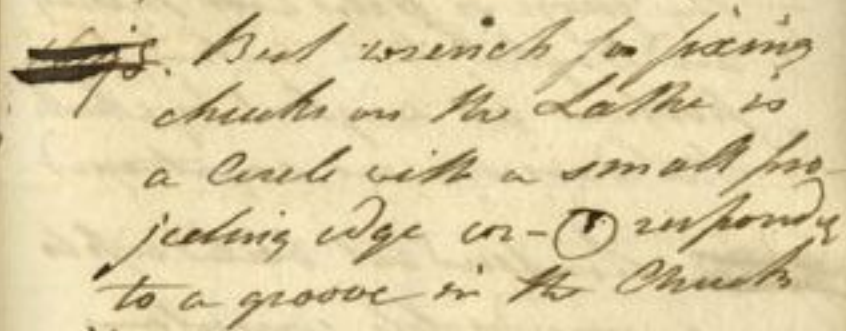 Best wrench for fixing
chucks on the Lathe is
a Circle with a small pro-
jecting edge cor- responding
to a groove in the Chuck